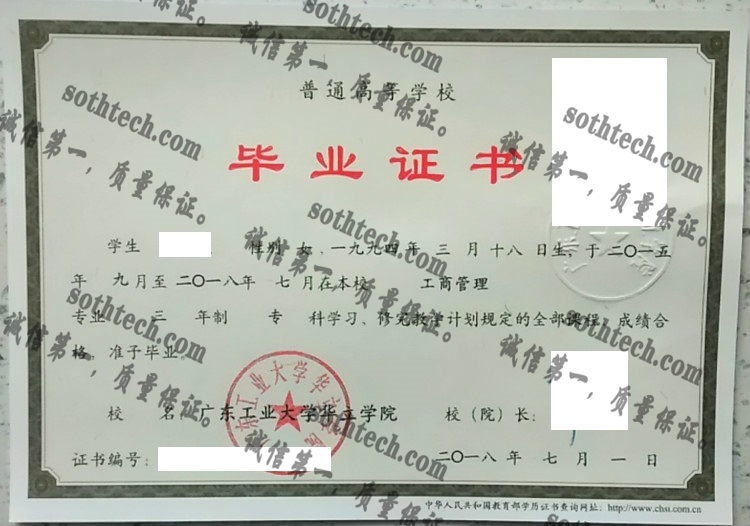 普通高等学校
毕业证书
学生 性别 女、一九九四年 三 月 十八 日生，于二〇一五
年 九月至 二〇一八年 七 月在本校 工商管理
专业 三 年制 专 科学习、修完教学计划规定的全部课程，成绩合
格，准予毕业。
校 名：广东工业大学华立学院 校（院）长：
证书编号： 二〇一八 年 七 月 一 日
中华人民共和国教育部学历证书查询网址：http://www.chsi.com.cn
广东工业大学华立学院
sothtech.com
诚信第一，质量保证。
sothtech.com
诚信第一，质量保证。
sothtech.com
诚信第一，质量保证。
sothtech.com
诚信第一，质量保证。
sothtech.com
诚信第一，质量保证。
sothtech.com
诚信第一，质量保证。
sothtech.com
诚信第一，质量保证。
sothtech.com